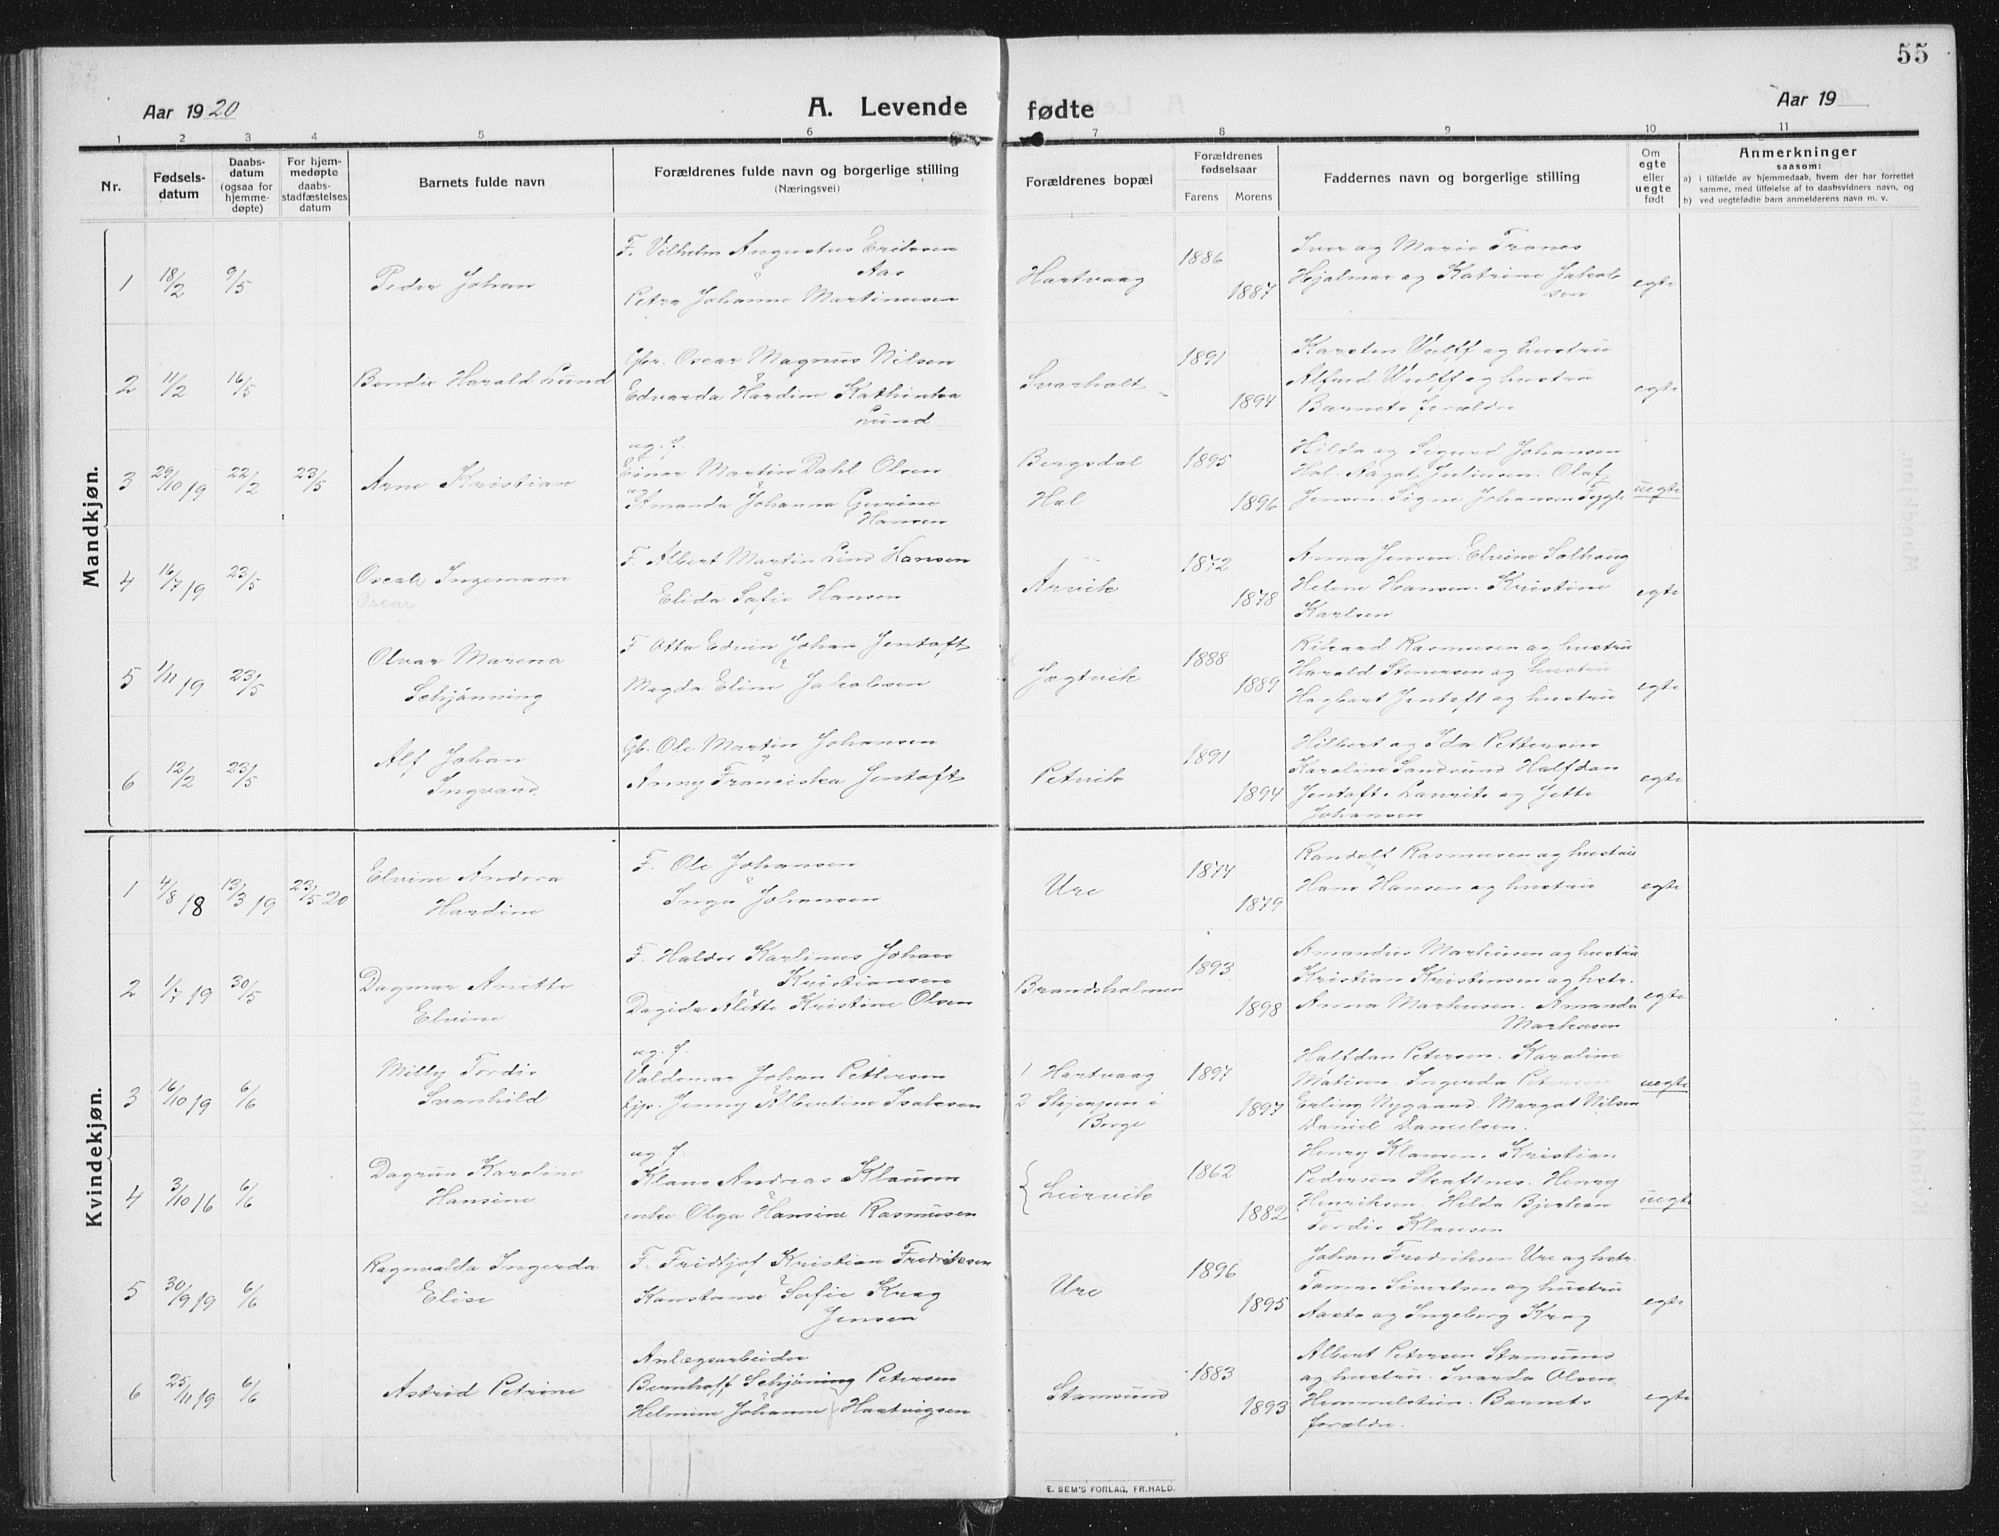 55
Aar 1920
A. Levende fødte
Aar 19
1 2 3 4 5 6 7 8 9 10 11
Nr.
Fødsels-datum
Daabs-datum (ogsaa for hjemme-døpte)
For hjem-medøpte daabs-stadfæstelses datum
Barnets fulde navn
Forældrenes fulde navn og borgerlige stilling
(Næringsvei)
Forældrenes bopæl
Forældrenes fødselsaar
Farens Morens
Faddernes navn og borgerlige stilling
Om egte eller uegte født
Anmerkninger
saasom:
a) i tilfælde av hjemmedaab, hvem der har forrettet samme, med tilføielse af to daabsvidners navn, og
b) ved uegtefødte barn anmelderens navn m. v.
Mandkjøn.
1 18/2 9/5 Peder Johan
F. Vilhelm Angustus Eriksen
Aas
Petra Johanne Martinusen
Hartvaag 1886 1887
Iver og Marie Tranes
Hjalmar og Katrine Jakob
sen
egte
2 11/2 16/5 Bendix Harald Lund
Gbr. Oscar Magnus Nilsen
Edvarda Hardine Kathinka
Lund
Svarholt 1891 1894
Karsten Wulff og hustru
Alfred Wulff og hustru
Barnets forældre
egte
3 29/10 19 22/2 23/5 Arne Kristian
ug. f
Einar Martin Dahl Olsen
ug
Amanda Johanna Gurine
Hansen
Bergsdal
Hal
1895 1896
Hilda og Sigurd Johansen
Hal. Aagot Juliusen. Olaf
Jensen. Signe Johansen Tygle
uegte
4 16/7 19 23/5 Oscal Ingemann
Oscar
F. Albert Martin Lind Hansen
Elida Sofie Hansen
Arvik 1872 1878
Anna Jensen. Elvine Solhaug
Helene Hansen. Kristine
Karlsen
egte
5 1/11 19 23/5 Olvar Marena
Schjønning
F Otto Edvin Johan Jentoft
Magda Eline Jakobsen
Jægtvik 1888 1889
Rikard Rasmusen og hustru
Harald Stenersen og hustru
Hagbart Jentoft og hustru
egte
6 12/2 23/5 Alf Johan
Ingvald
Gb. Ole Martin Johansen
Anny Franciska Jentoft
Petvik 1891 1894
Hilbert og Ida Pettersen
Karoline Sandsund Halfdan
Jentoft. Laurits og Jette
Johansen
egte
Kvindekjøn.
1 4/8 18 13/3 19 23/5 20 Elvine Andora
Hardine
F. Ole Johansen
Inga Johansen
Ure 1874 1879
Randolf Rasmusen og hustru
Hans Hansen og hustru
egte
2 1/7 19 30/5 Dagmar Anette
Elvine
F. Haldor Karlinus Johan
Kristiansen
Dagida Alette Kristine Olsen
Brandsholmen 1893 1898
Amandus Markusen og hustru
Kristian Kristensen og hstr.
Anna Markusen. Amanda
Markusen
egte
3 16/10 19 6/6 Milly Tordis
Svanhild
ug. f.
Valdemar Johan Pettersen
tjp. Jenny Albertine Isaksen
1 Hartvaag
2 Stjernøen i
Borge
1897 1897
Halfdan Petersen. Karoline
Matisen. Ingerda Petersen
Erling Nygaard. Margot Nilsen
Daniel Danielsen.
uegte
4 3/10 16 6/6 Dagrun Karoline
Hansine
ug. f
Klaus Andreas Klausen
enke. Olga Hansine Rasmusen
Leirvik 1862 1882
Henry Klausen. Kristian
Pedersen Skaftnes. Henry
Henriksen. Hilda Bjerkan
Tordis Klausen
uegte
5 30/9 19 6/6 Ragnvalda Ingerda
Elise
F. Fridtjof Kristian Fredriksen
Konstanse Sofie Krag
Jensen
Ure 1896 1895
Johan Fredriksen Ure og hstr.
Tomas Sivertsen og hustru
Aasta og Ingeborg Krag
egte
6 25/11 19 6/6 Astrid Petrine
Anlægsarbeider
Bernhoff Schjøning Petersen
Helmine Johanne Hartvigsen
Stamsund 1883 1893
Albert Petersen Stamsund
og hustru. Svarda Olsen
Himmelstein. Barnets
forældre.
egte
E. SEM'S FORLAG, FR.HALD.